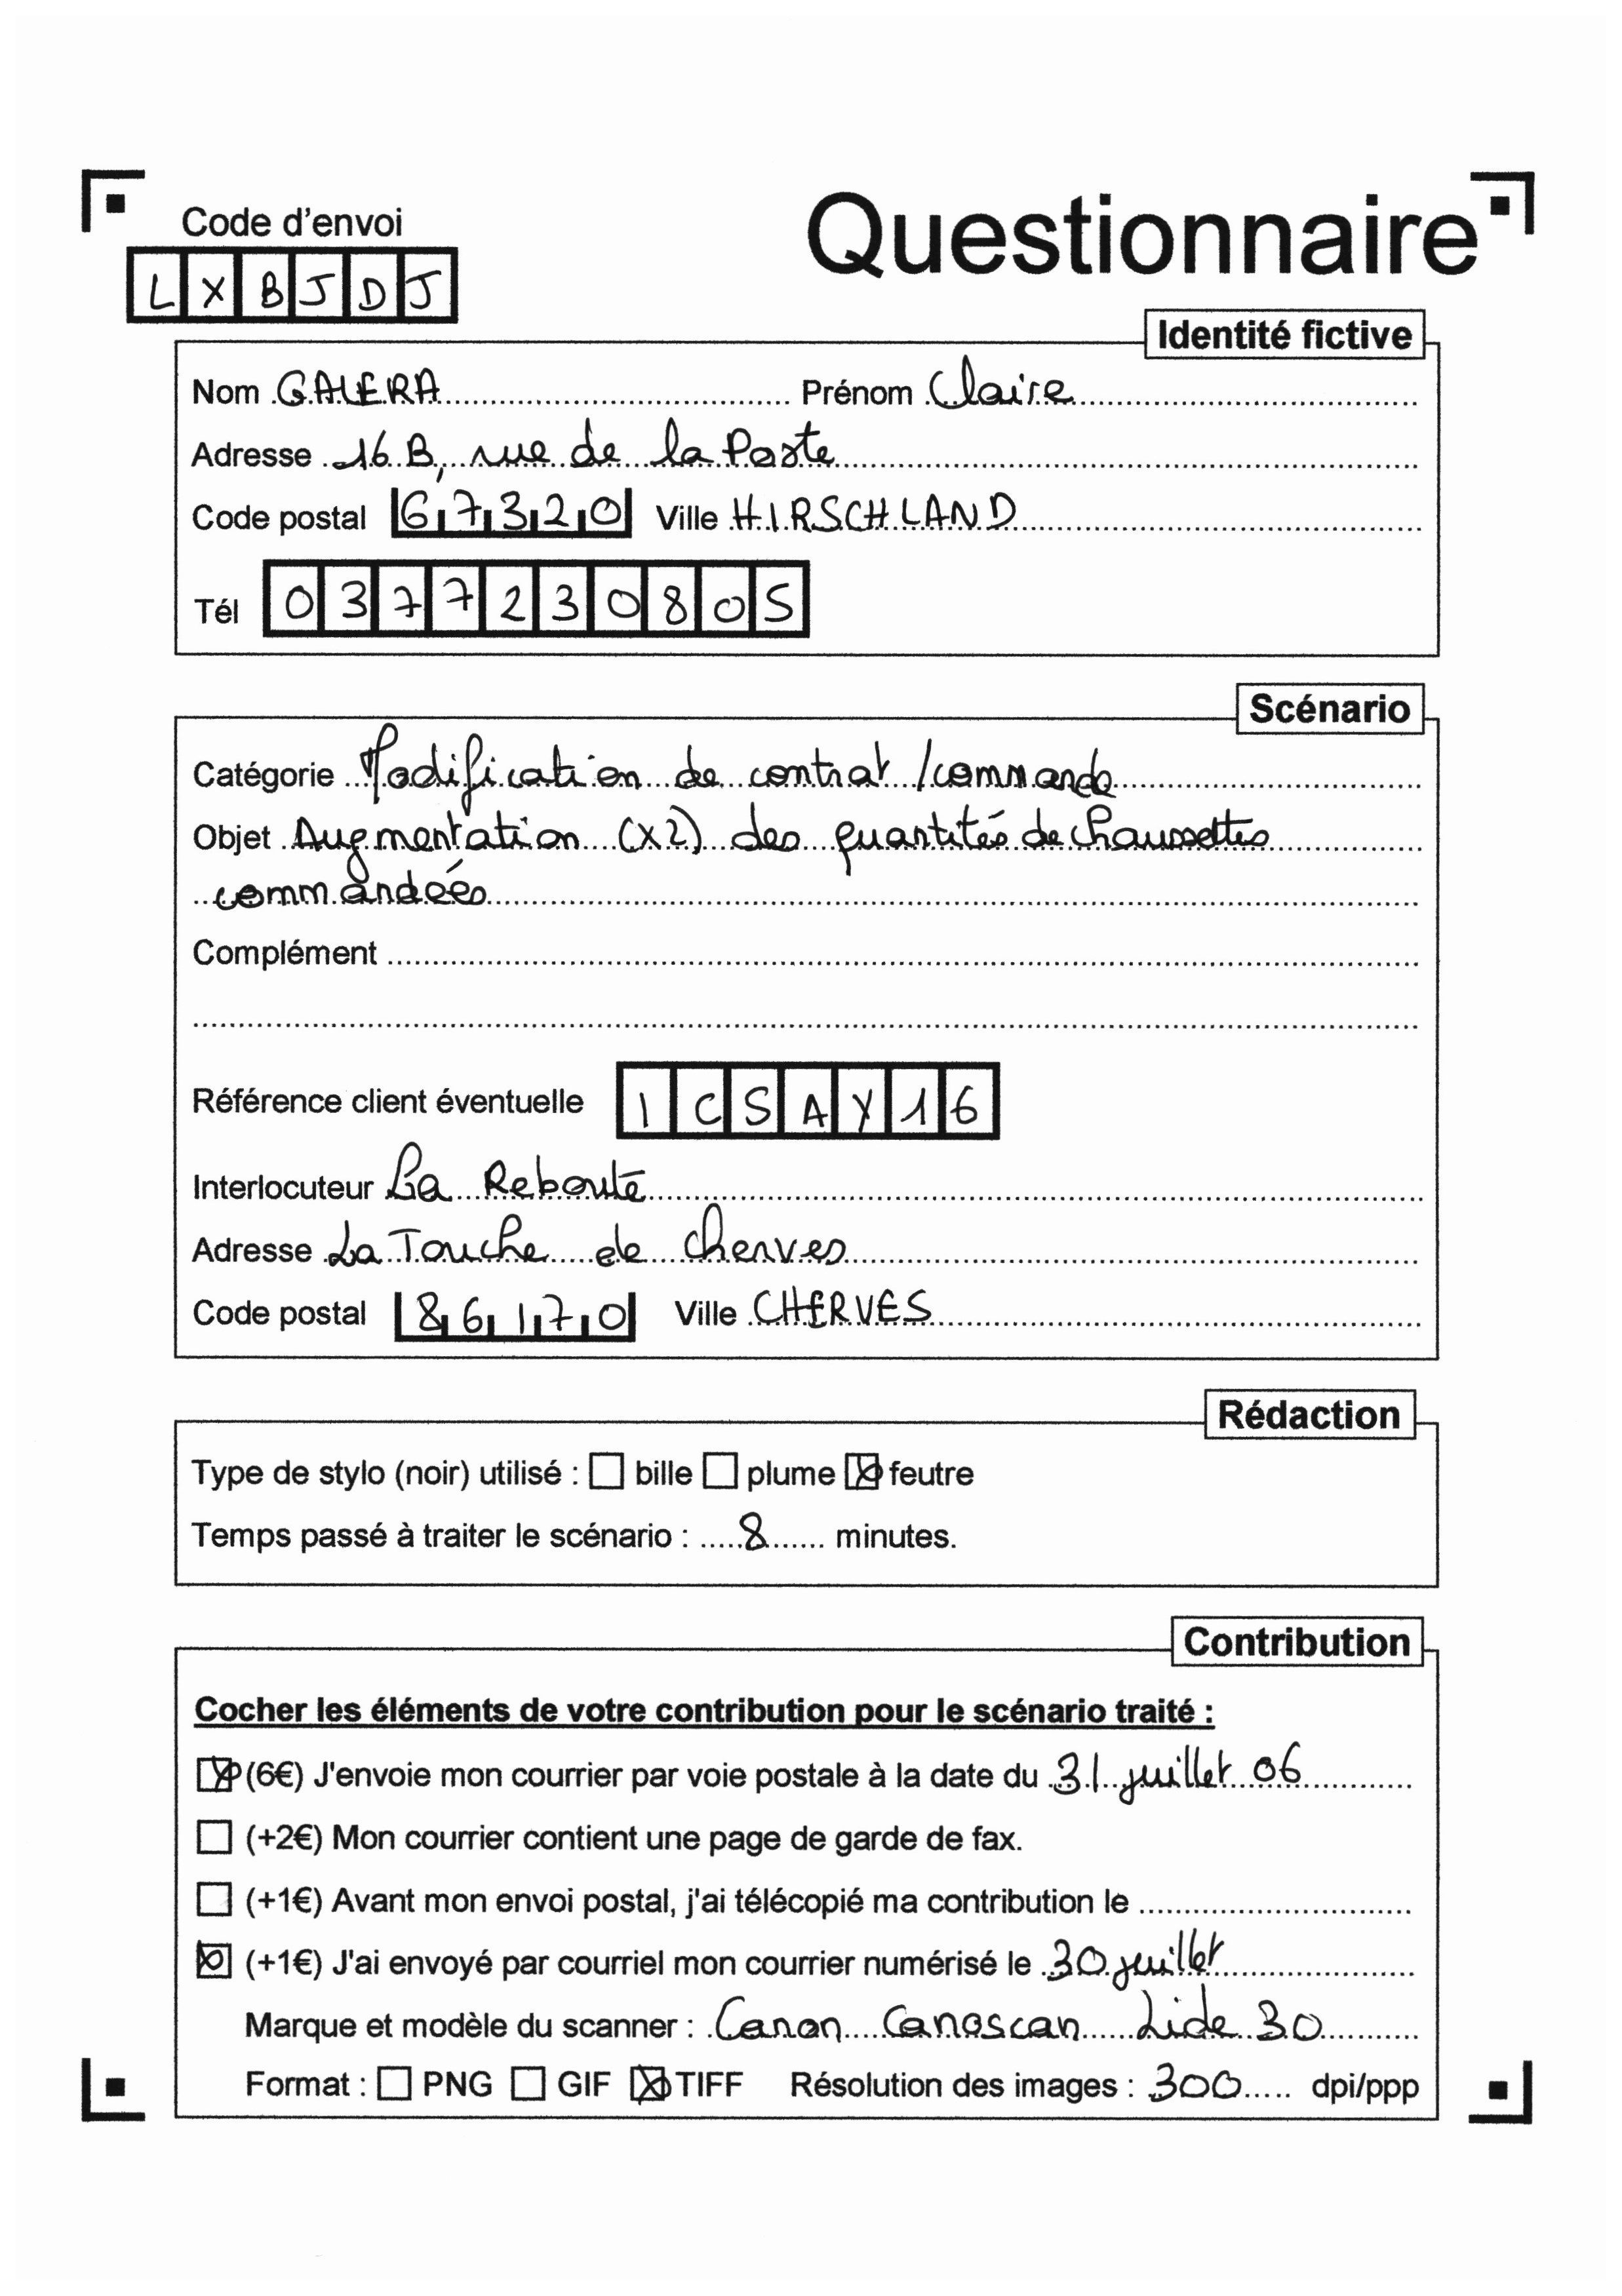 Questionnaire
Code d'envoi
LXBJDJ
Identité fictive
Nom GALERA Prénom Claire
Adresse 16B, rue de la Poste
Code postal 67320 Ville HIRSCHLAND
Tél 0377230805
Scénario
Catégorie Modification de contrat / commande
Objet Augmentation (x2) des quantités de chaussettes
commandées
Complément
Référence client éventuelle ICSAY16
Interlocuteur La Reboute
Adresse La Touche de Cherves
Code postal 86170 Ville CHERVES
Rédaction
Type de stylo (noir) utilisé : ☐ bille ☐ plume ☒ feutre
Temps passé à traiter le scénario : 8 minutes.
Contribution
Cocher les éléments de votre contribution pour le scénario traité :
☒ (6€) J'envoie mon courrier par voie postale à la date du 31 juillet 06
☐ (+2€) Mon courrier contient une page de garde de fax.
☐ (+1€) Avant mon envoi postal, j'ai télécopié ma contribution le
☒ (+1€) J'ai envoyé par courriel mon courrier numérisé le 30 juillet
Marque et modèle du scanner : Canon Canoscan Lide 30
Format : ☐ PNG ☐ GIF ☒ TIFF Résolution des images : 300 dpi/ppp